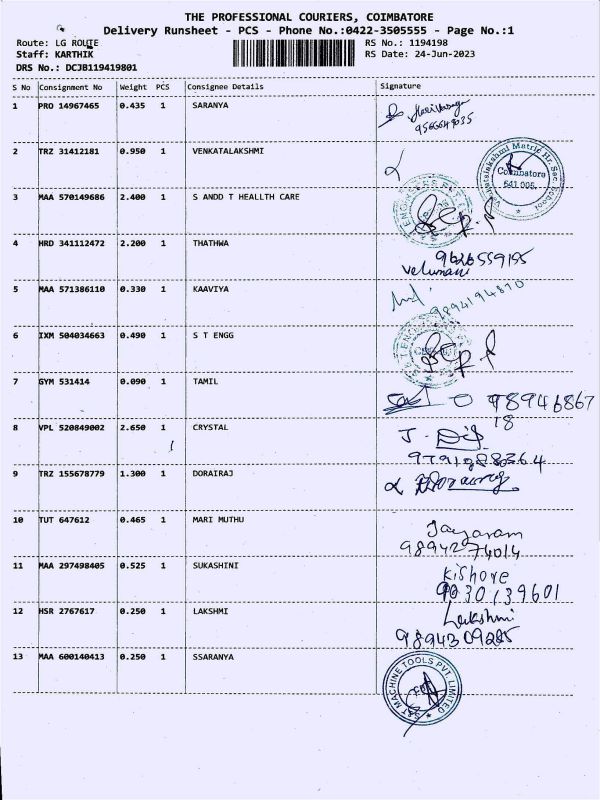 THE PROFESSIONAL COURIERS, COIMBATORE
Delivery Runsheet - PCS - Phone No.:0422-3505555 - Page No.:1
Route: LG ROUTE RS No.: 1194198
Staff: KARTHIK RS Date: 24-Jun-2023
DRS No.: DCJB119419801
S No Consignment No Weight PCS Consignee Details Signature
1 PRO 14967465 0.435 1 SARANYA
2 TRZ 31412181 0.950 1 VENKATALAKSHMI
Coimbatore
641 005.
3 MAA 570149686 2.400 1 S ANDD T HEALLTH CARE
4 HRD 341112472 2.200 1 THATHWA 9626559195
Velumani
5 MAA 571386110 0.330 1 KAAVIYA 9894194810
6 IXM 504034663 0.490 1 S T ENGG
7 GYM 531414 0.090 1 TAMIL 98946867
18
8 VPL 520849002 2.650 1 CRYSTAL
9 TRZ 155678779 1.300 1 DORAIRAJ
10 TUT 647612 0.465 1 MARI MUTHU Jayaram
9894274014
11 MAA 297498405 0.525 1 SUKASHINI Kishore
9030139601
12 HSR 2767617 0.250 1 LAKSHMI Lakshmi
13 MAA 600140413 0.250 1 SSARANYA
S&T MACHINE TOOLS PVT. LIMITED